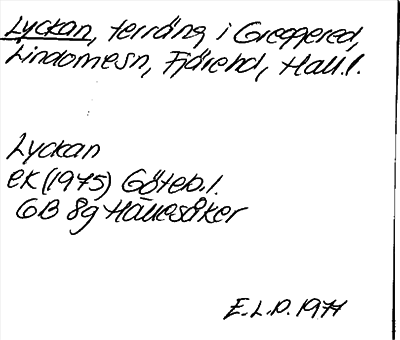 Lyckan, terräng i Greggered,
Lindomesn, Fjärehd, Hall.l.
Lyckan
ek (1975) Göteb.l.
GB 8g Hällesåker
E.L.D. 1977